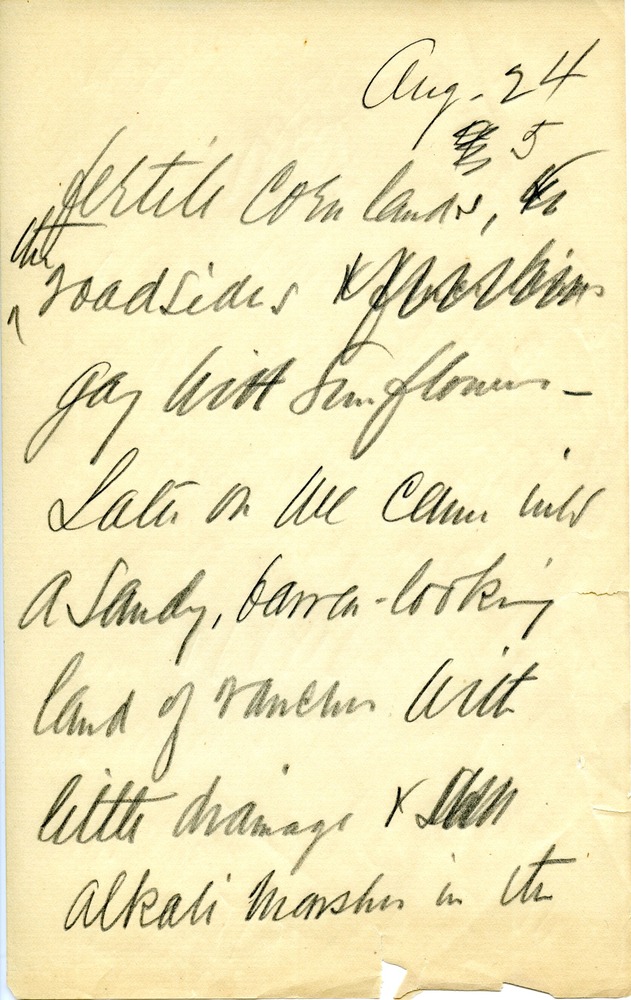 Aug. 24
5
fertile corn lands,
the
roadsides +
gay with sunflowers –
Later on we came into
a sandy, barren-looking
land of ranches with
little drainage +
alkali marshes in the